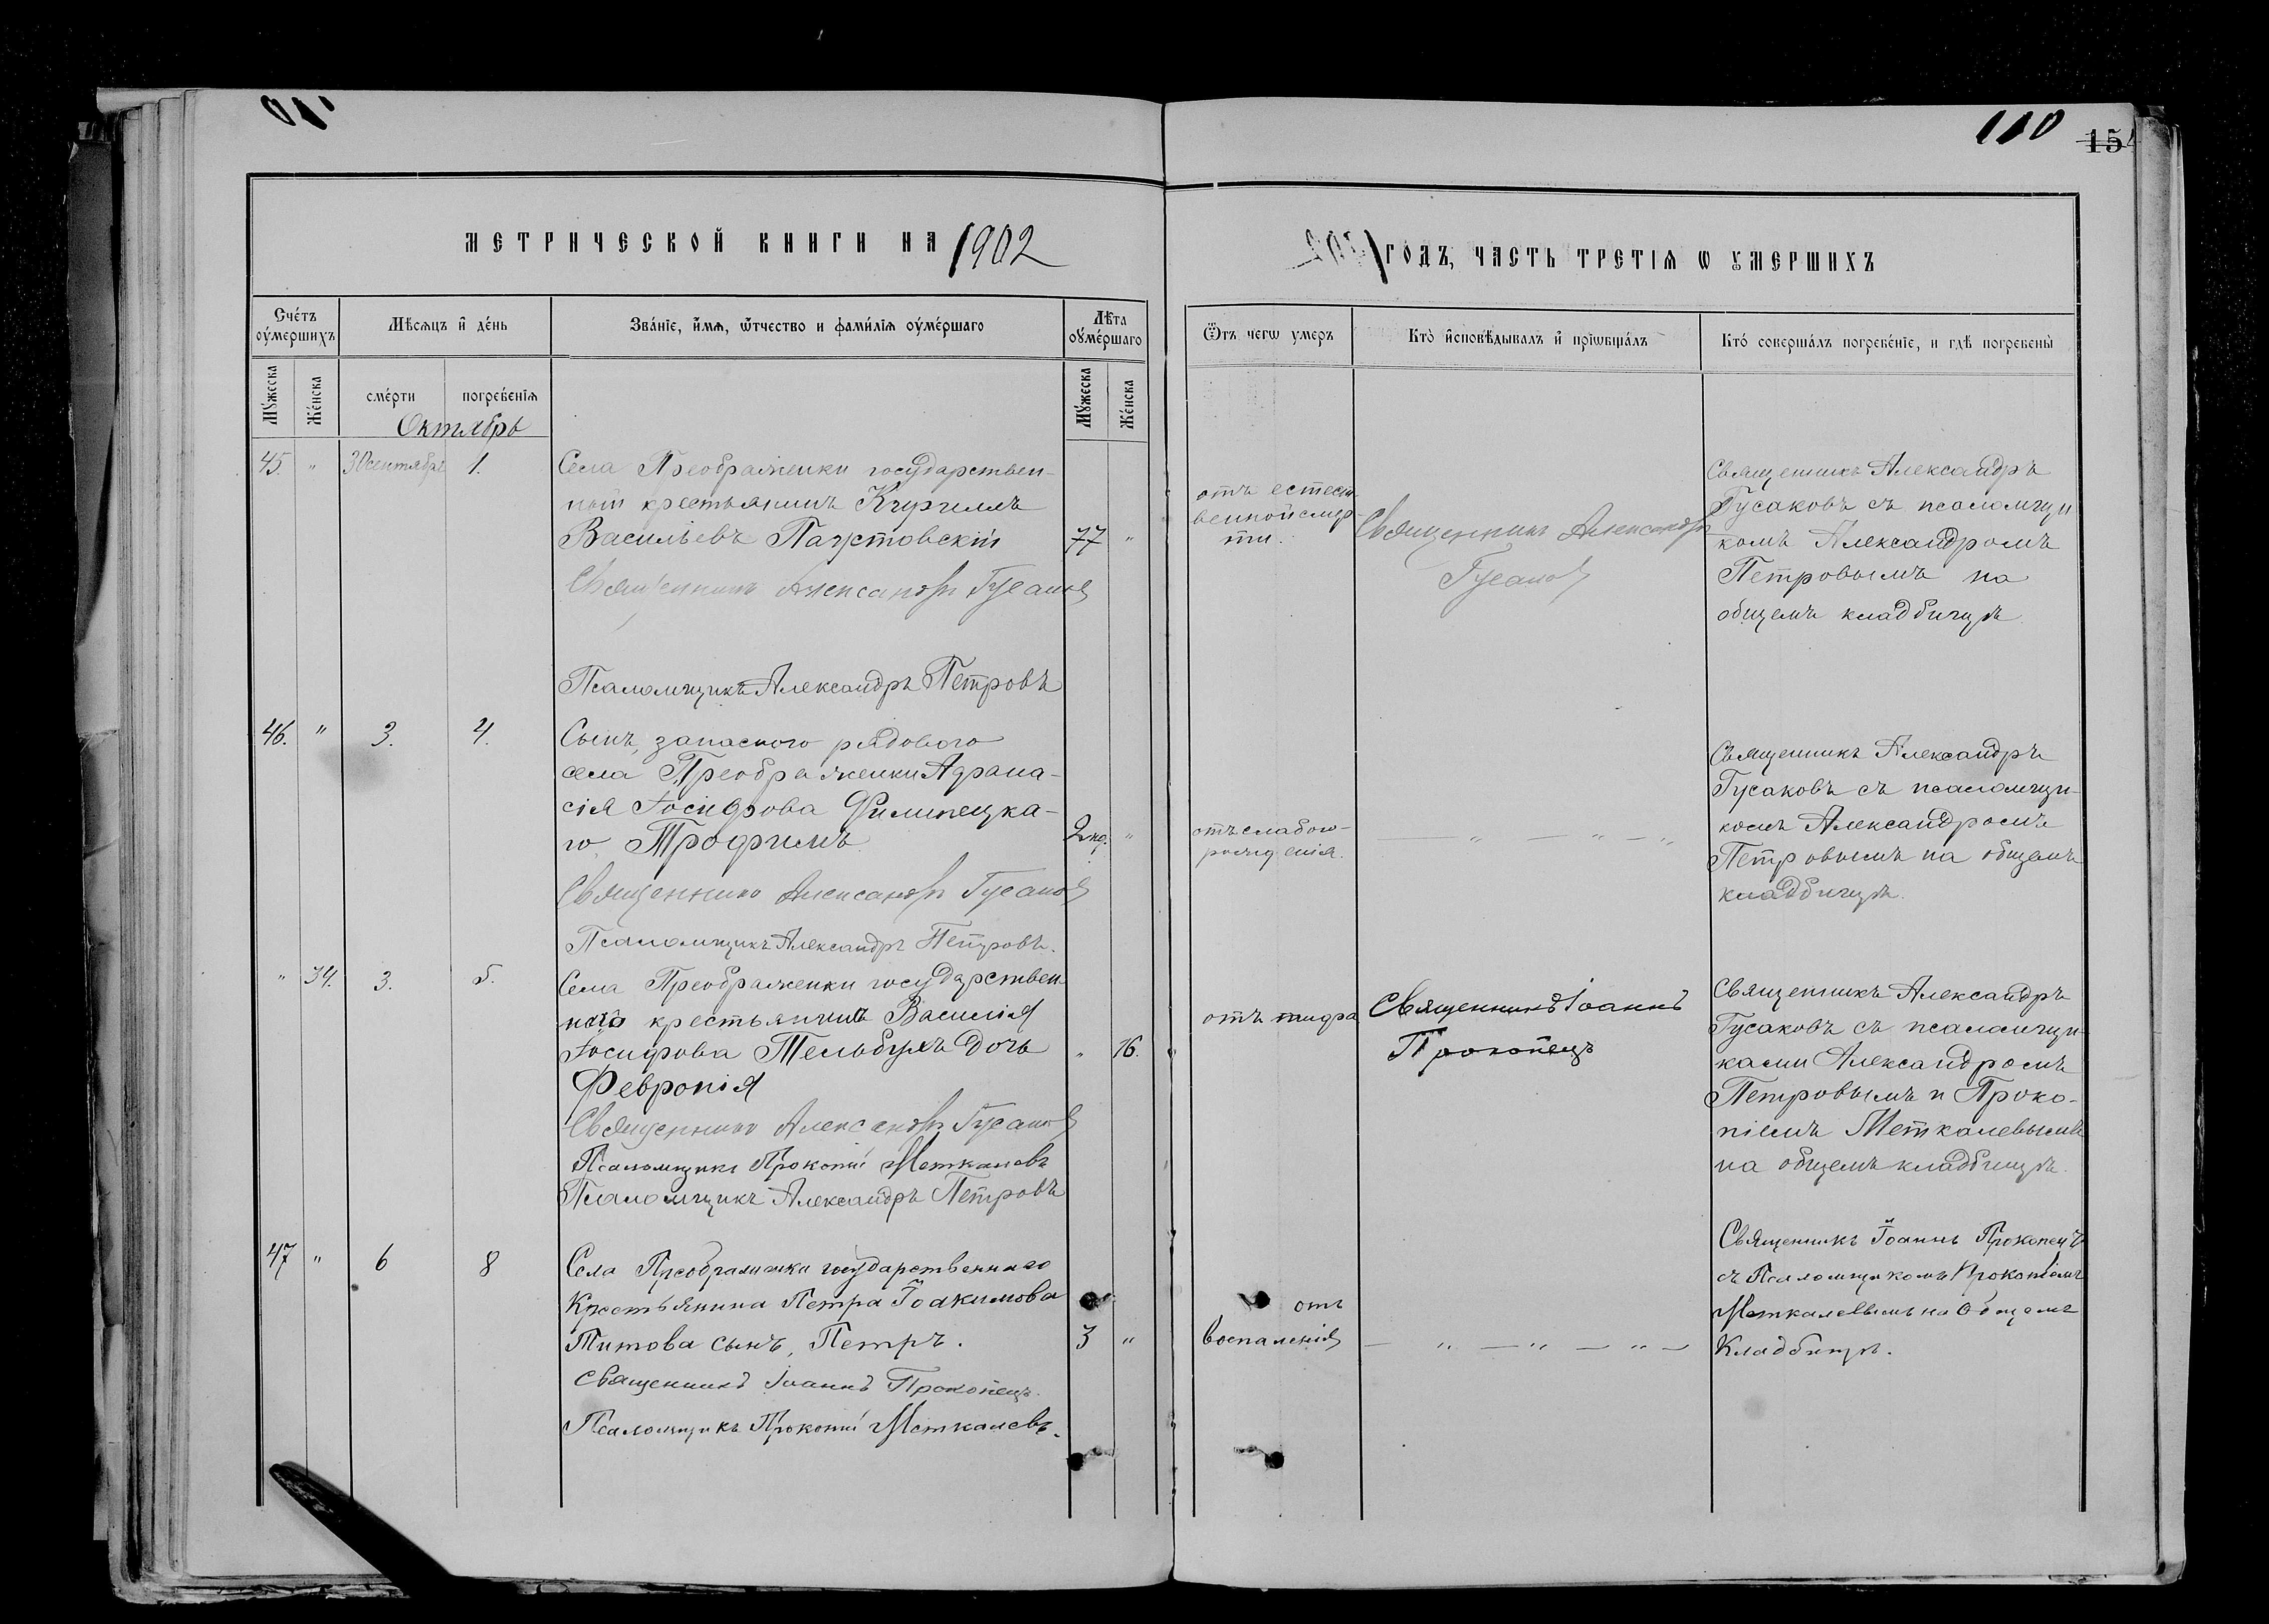 110
154
МЕТРИЧЕСКОЙ КНИГИ НА 1902
ГОДЪ, ЧАСТЬ ТРЕТІЯ Ѡ ОУМЕРШИХЪ
Счéтъ оу́мершихъ
Мѣ́сяцъ и҆ дéнь
Звáнїе, и҆́мя, ѿтчество и фами́лїя оумéршаго
Лѣ́та оумéршаго
Ѿтъ чегѡ умеръ
Кто̀ и҆сповѣ́дывалъ и҆ прїѡбщáлъ
Ктó совершáлъ погребéнїе, и гдѣ̀ погребены̀
Му́жеска
Жéнска
смéрти
погребéнїя
Му́жеска
Жéнска
Октябрь
45. " 30 сентября 1.
Села Преображенки государствен-
ный крестьянинъ Кириллъ
Васильевъ Паустовскій 77 "
Священникъ Александръ Гусаковъ
Псаломщикъ Александръ Петровъ
отъ естест-
венной смер-
ти.
Священникъ Александръ
Гусаковъ
Священникъ Александръ
Гусаковъ съ псаломщи
комъ Александромъ
Петровымъ на
общемъ кладбищѣ
46. " 3. 4.
Сынъ, запасного рядового
села Преображенки Афана-
сія Іосифова Филипецка-
го Трофимъ 2 нд. "
Священникъ Александръ Гусаковъ
Псаломщикъ Александръ Петровъ.
отъ слабо-
рожденія.
— " — " — "
Священникъ Александръ
Гусаковъ съ псаломщи-
комъ Александромъ
Петровымъ на общемъ
кладбищѣ.
" 34. 3. 5.
Села Преображенки государствен
наго крестьянина Василія
Іосифова Тельбухъ дочь " 16.
Февронія
Священникъ Александръ Гусаковъ
Псаломщикъ Прокопій Меткалевъ
Псаломщикъ Александръ Петровъ
отъ тифа
Священникъ Іоаннъ
Прокопецъ
Священникъ Александръ
Гусаковъ съ псаломщи
ками Александромъ
Петровымъ и Проко-
піемъ Меткалевымъ
на общемъ кладбищѣ.
47 " 6 8
Села Преображенки государственнаго
Крестьянина Петра Іоакимова
Титова сынъ, Петръ. 3 "
Священникъ Іоаннъ Прокопецъ.
Псаломщикъ Прокопій Меткалевъ.
отъ
воспаленія
— " — " — " —
Священникъ Іоаннъ Прокопецъ
съ Псаломщикомъ Прокопіемъ
Меткалевымъ на Общемъ
Кладбищѣ.